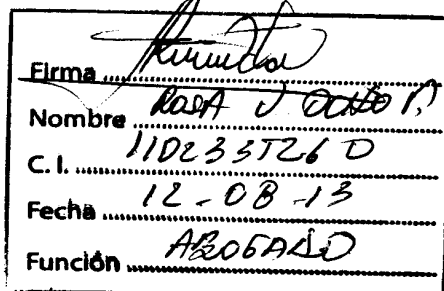 Firma
Nombre ROSA V OCHO P.
C. I. 110233526 0
Fecha 12-08-13
Función ABOGADO